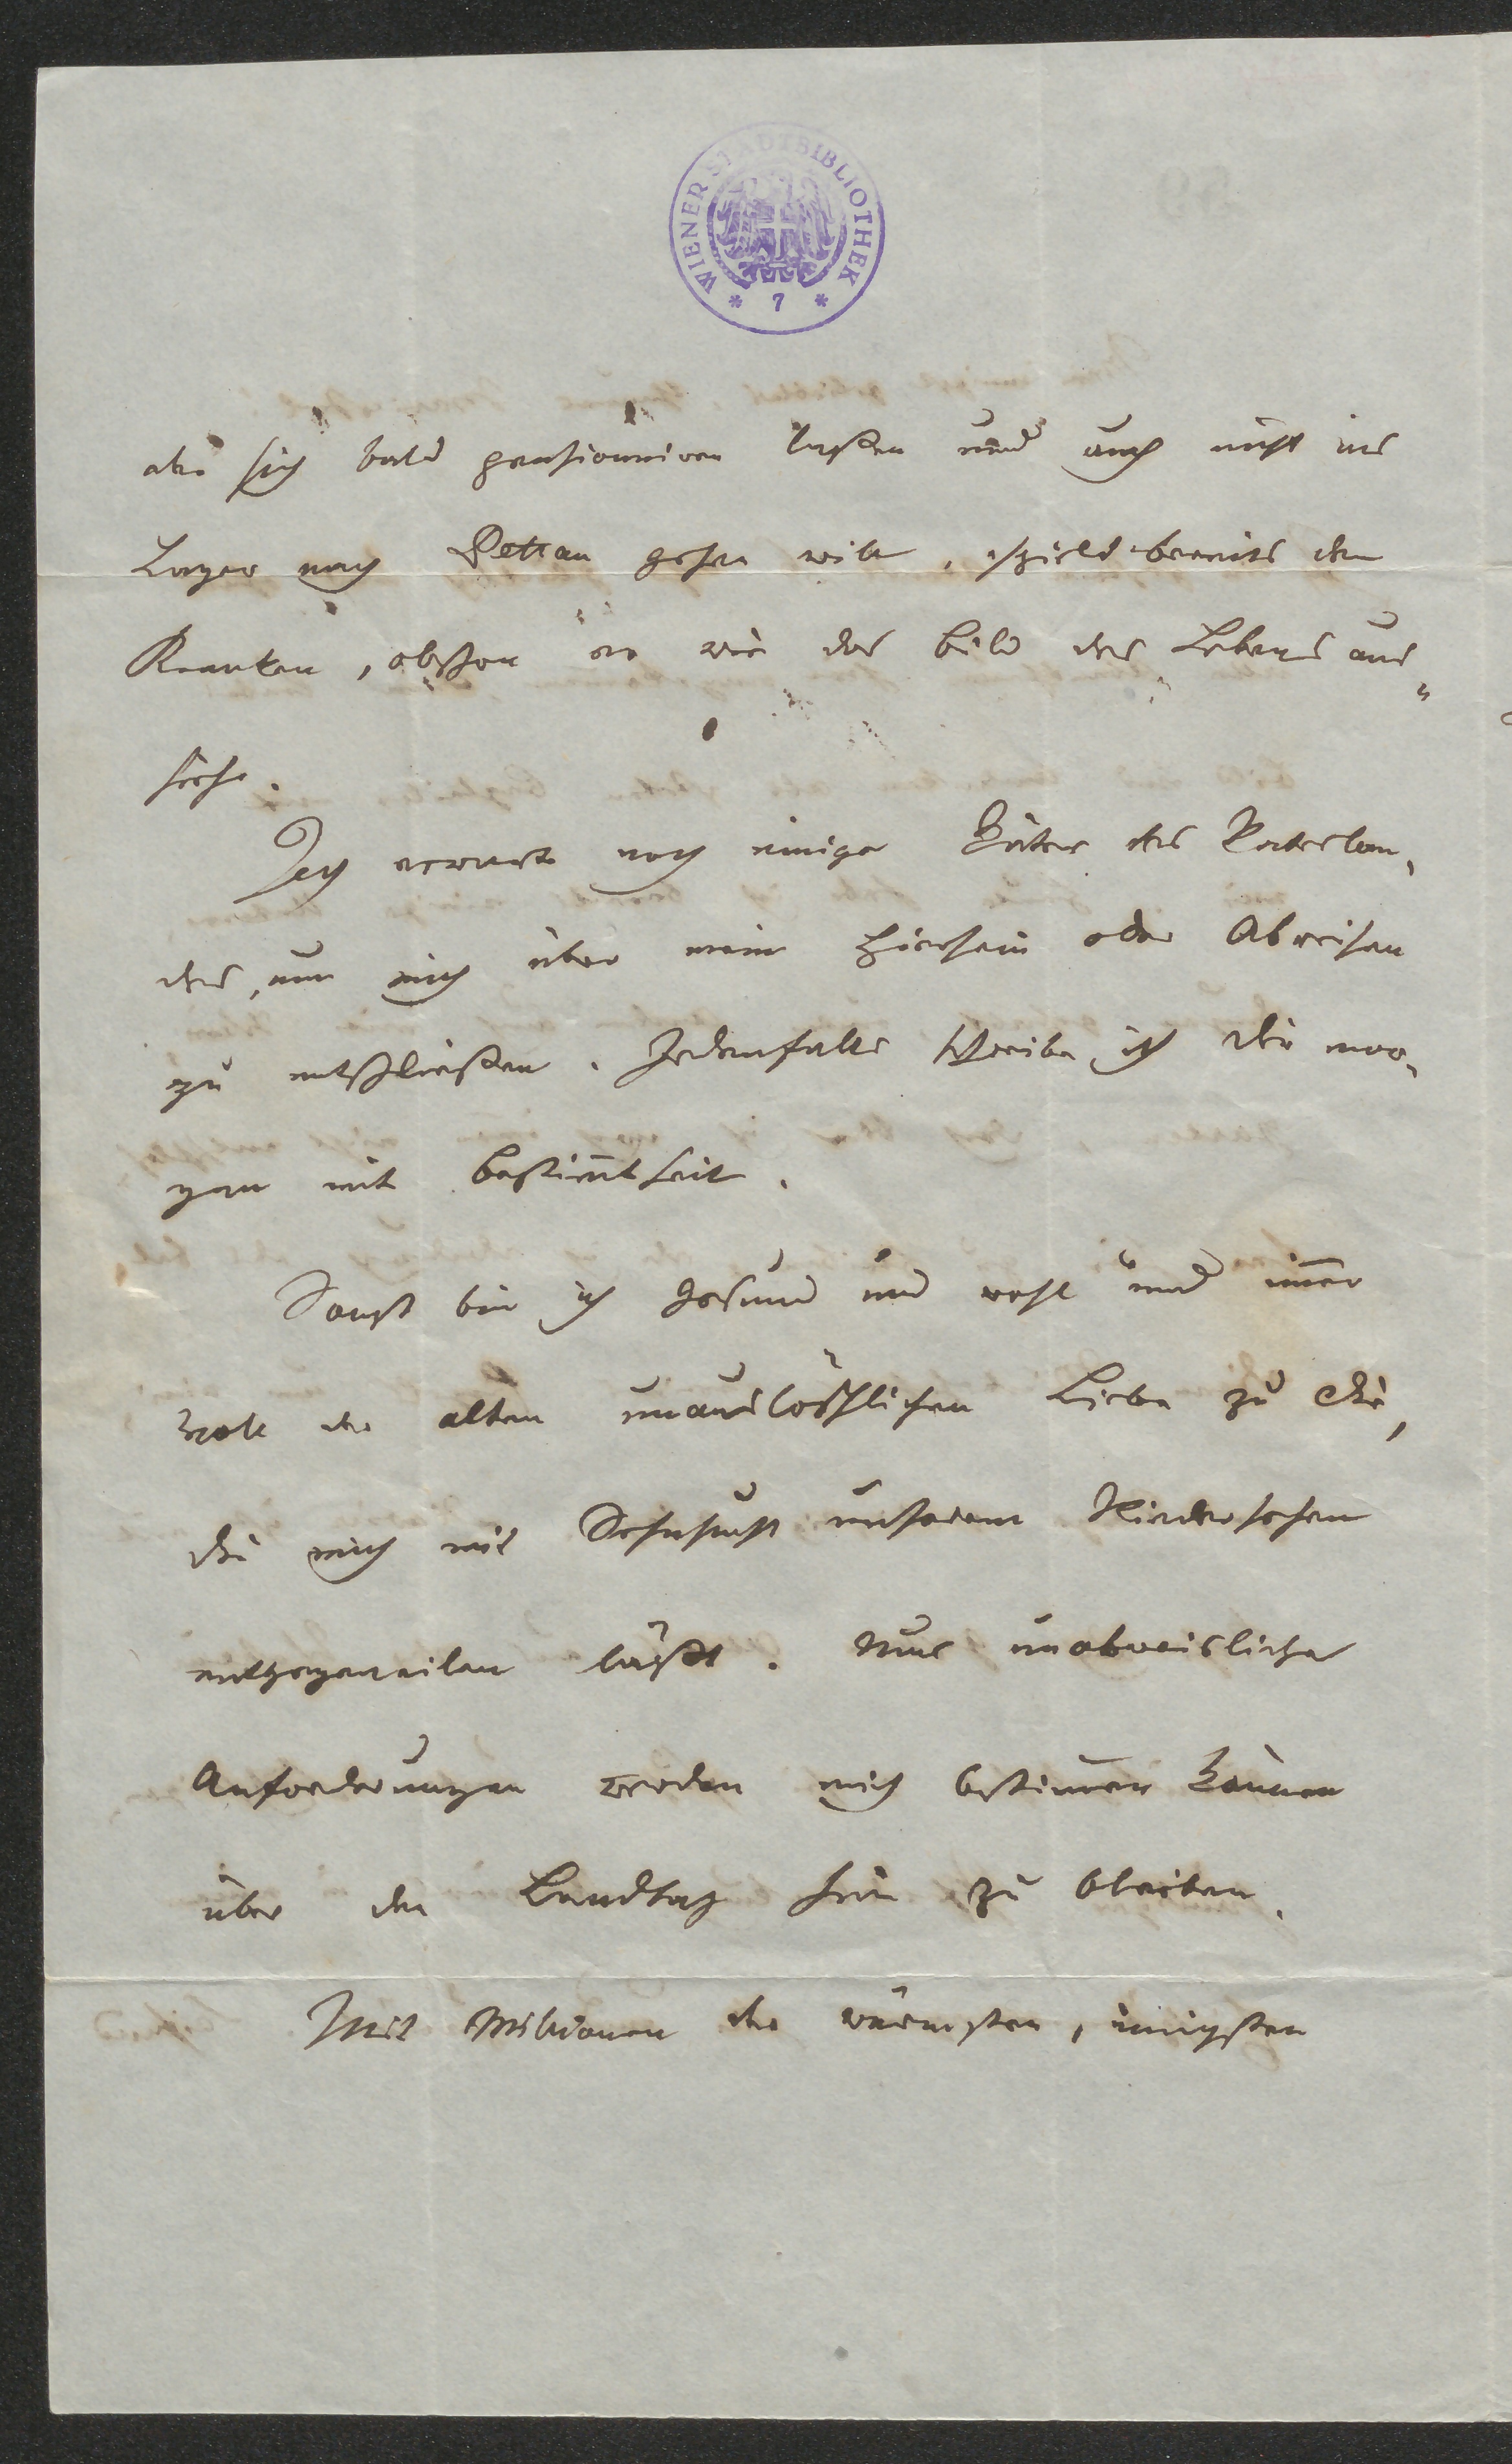 WIENER STADTBIBLIOTHEK
* 7 *
der sich bald pensionniren laßen und auch nicht ins
Lager nach Pettau gehen will, spielt bereits den
Kranken, obschon er wie das Bild des Lebens aus„
sieht.
Ich erwarte noch einige Väter des Vaterlan„
des, um mich über mein Hiersein oder Abreisen
zu entschließen. Jedenfalls schreibe ich Dir mor„
gen mit Bestimtheit.
Sonst bin ich gesund und wohl und imer
voll der alten unauslöschlichen Liebe zu Dir,
die mich mit Sehnsucht unserem Wiedersehen
entgegeneilen läßt. Nur unabweisliche
Anforderungen werden mich bestimen können
über den Landtag hier zu bleiben.
Mit Millionen der wärmsten, innigsten